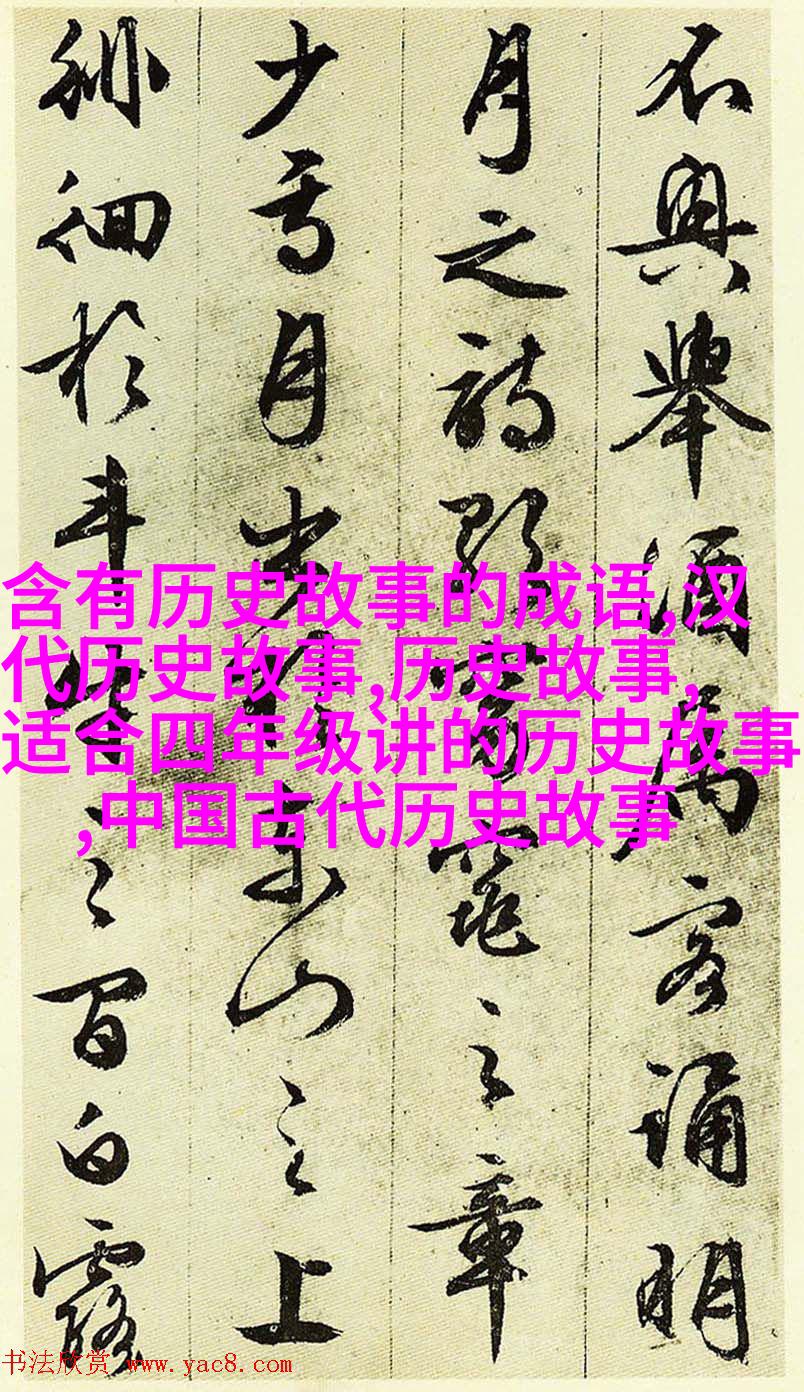 不興舉酒属客誦明
月之詩歌窈窕之章
少焉月出於東山之上
徘徊於斗牛之間白露
含有历史故事的成语,汉
代历史故事,历史故事,
适合四年级讲的历史故事
,中国古代历史故事
书法欣赏 www.yac8.com